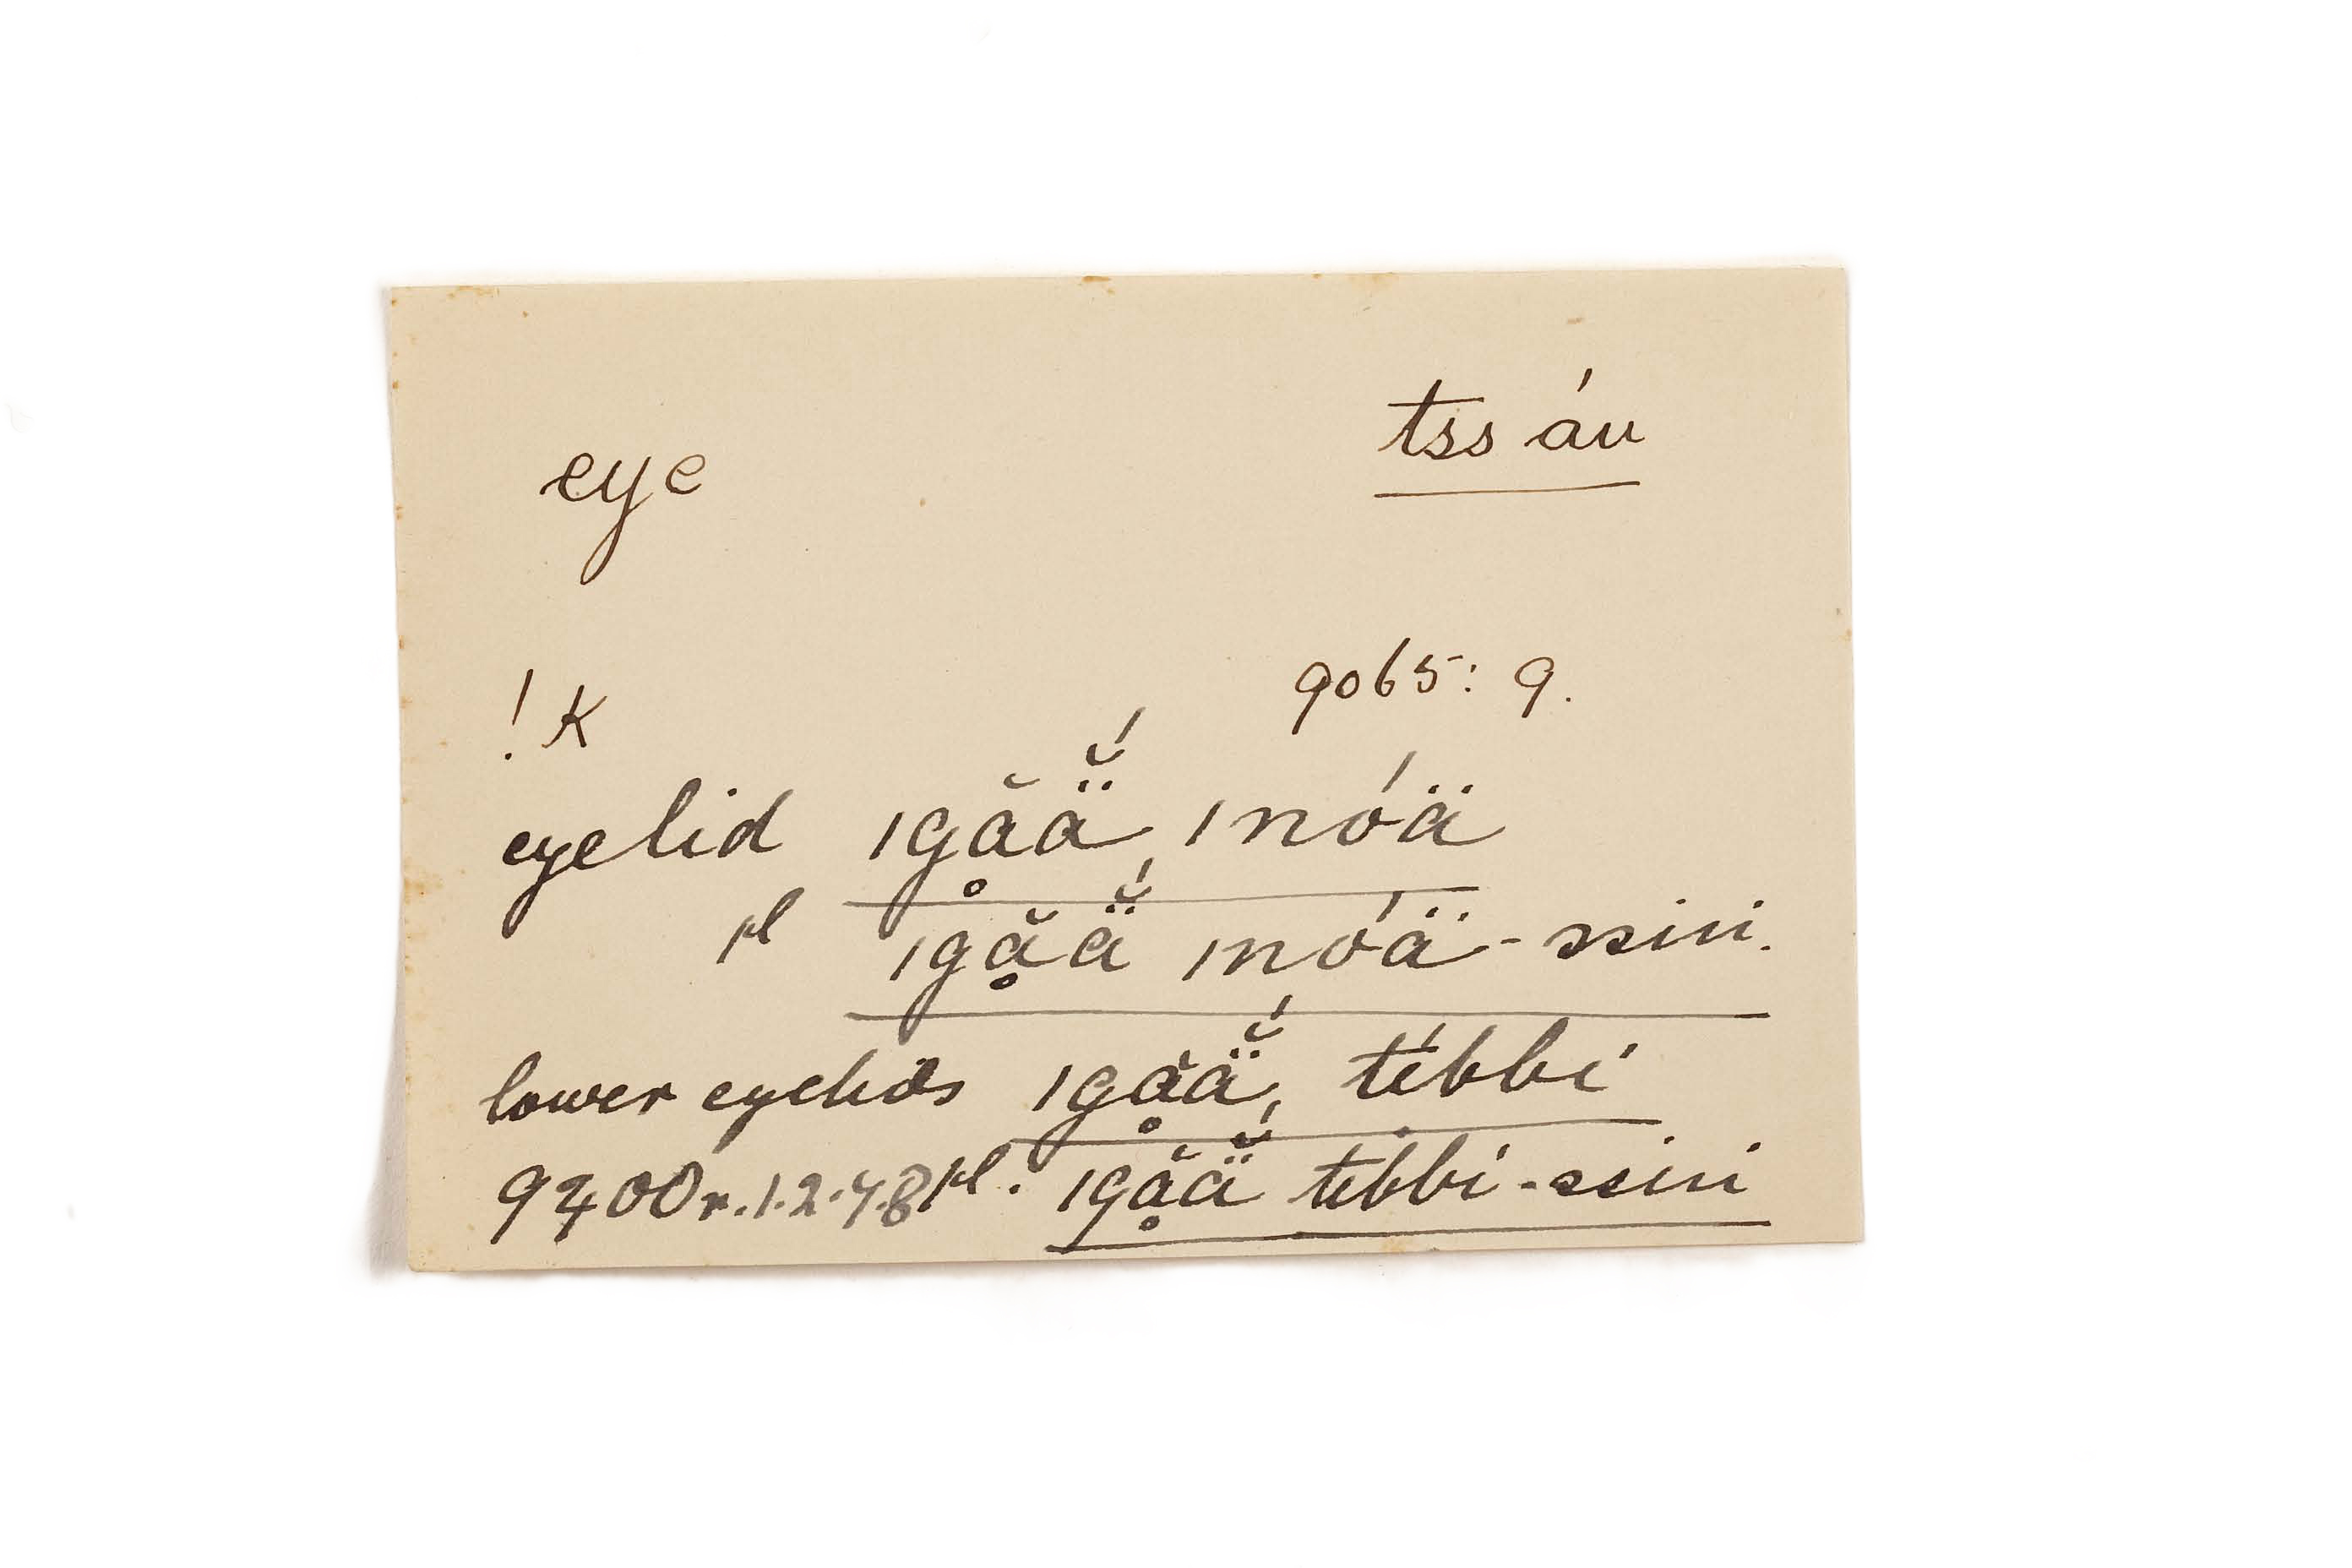 eye tssáu
!K 9065: 9.
eyelid ıgḁ̆ä̆́, ınóä
pl ıgḁ̆ä̆́ ınóä-ssin.
lower eyelids ıgḁ̆ä̆́, tébbí
9400r.1.2.7.8 pl. ıgḁ̆ä̆́ tébbí-ssin